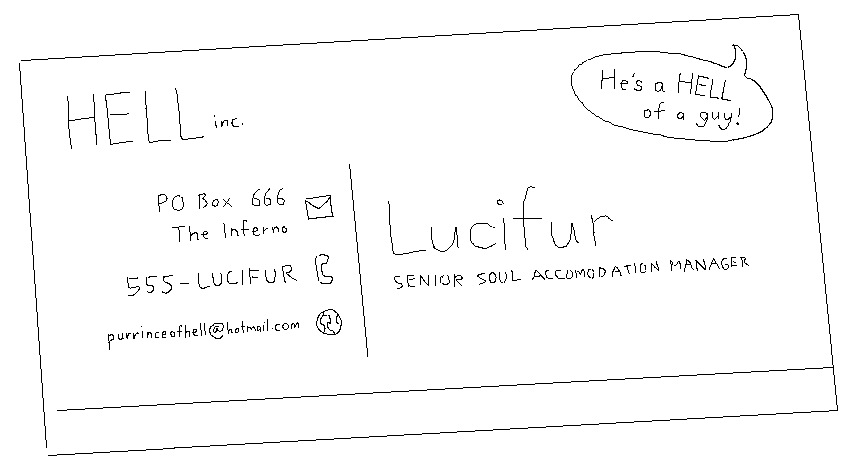 HELL inc.
He's a HELL
of a guy!
PO Box 666
The Inferno
555-LUCIFUR
purrinceofhell@hotmail.com
Lucifur
SENIOR SOUL ACCOMODATION MANAGER